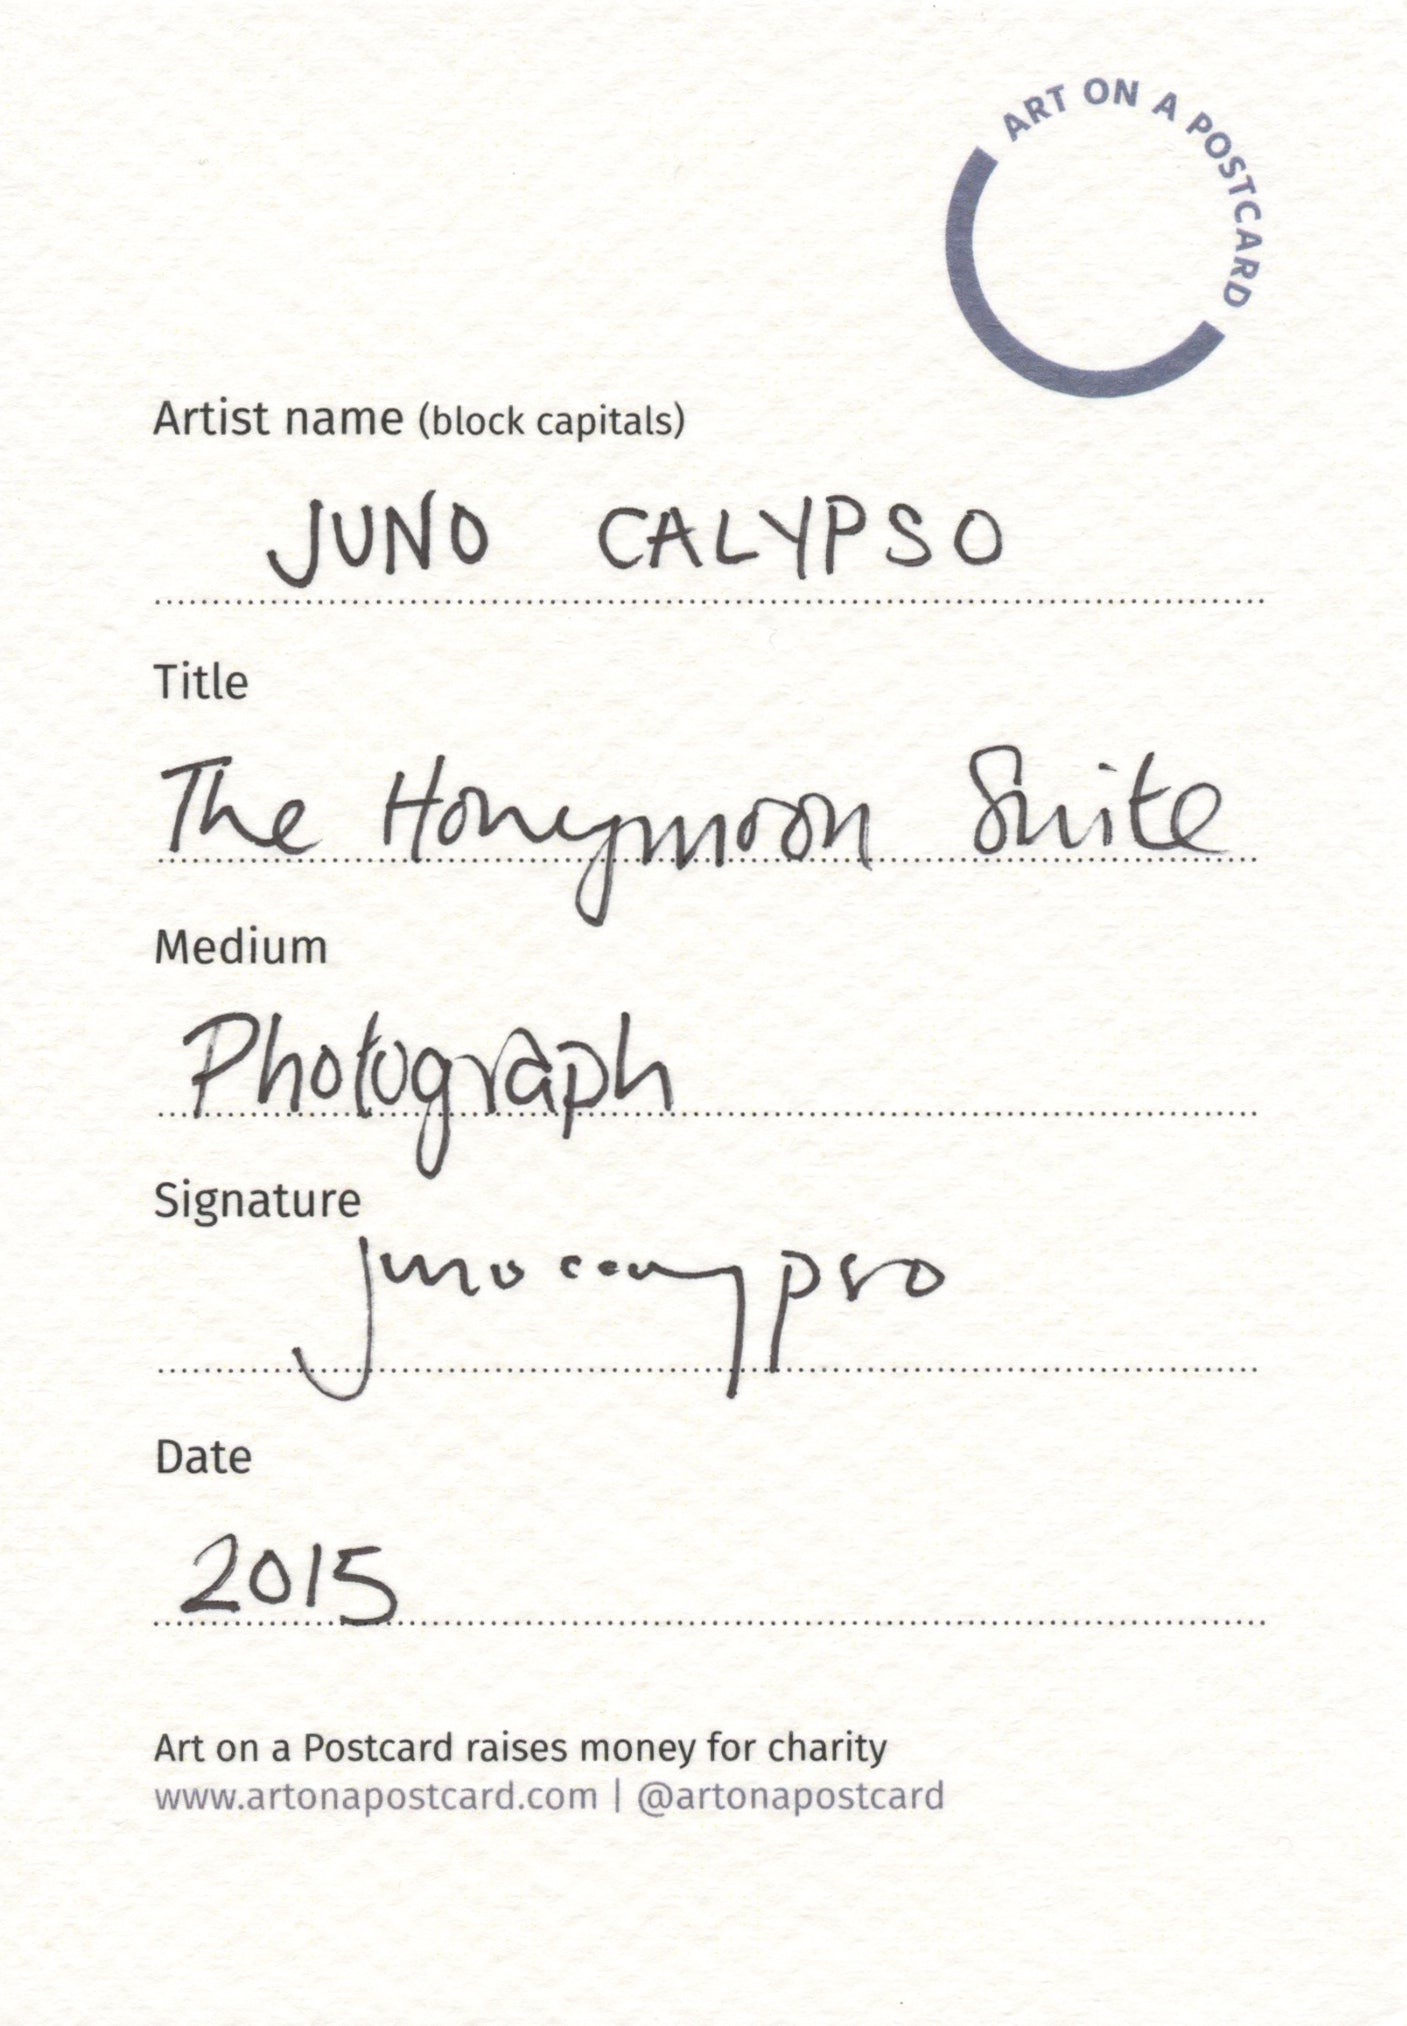 ART ON A POSTCARD
Artist name (block capitals)
JUNO CALYPSO
Title
The Honeymoon Suite
Medium
Photograph
Signature
juno calypso
Date
2015
Art on a Postcard raises money for charity
www.artonapostcard.com | @artonapostcard